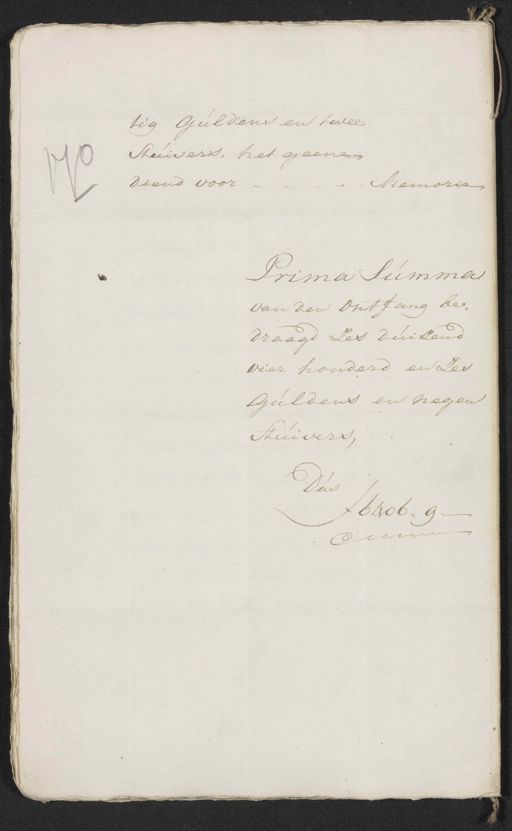 tig Gúldens en twee
Stúivers. het geene
diend voor - - - - Memorie
Prima Súmma
van den Ontfang be,
draagd Zes dúizend
vier honderd en Zes
Gúldens en negen
Stúivers,
Dús
ƒ6406.9-